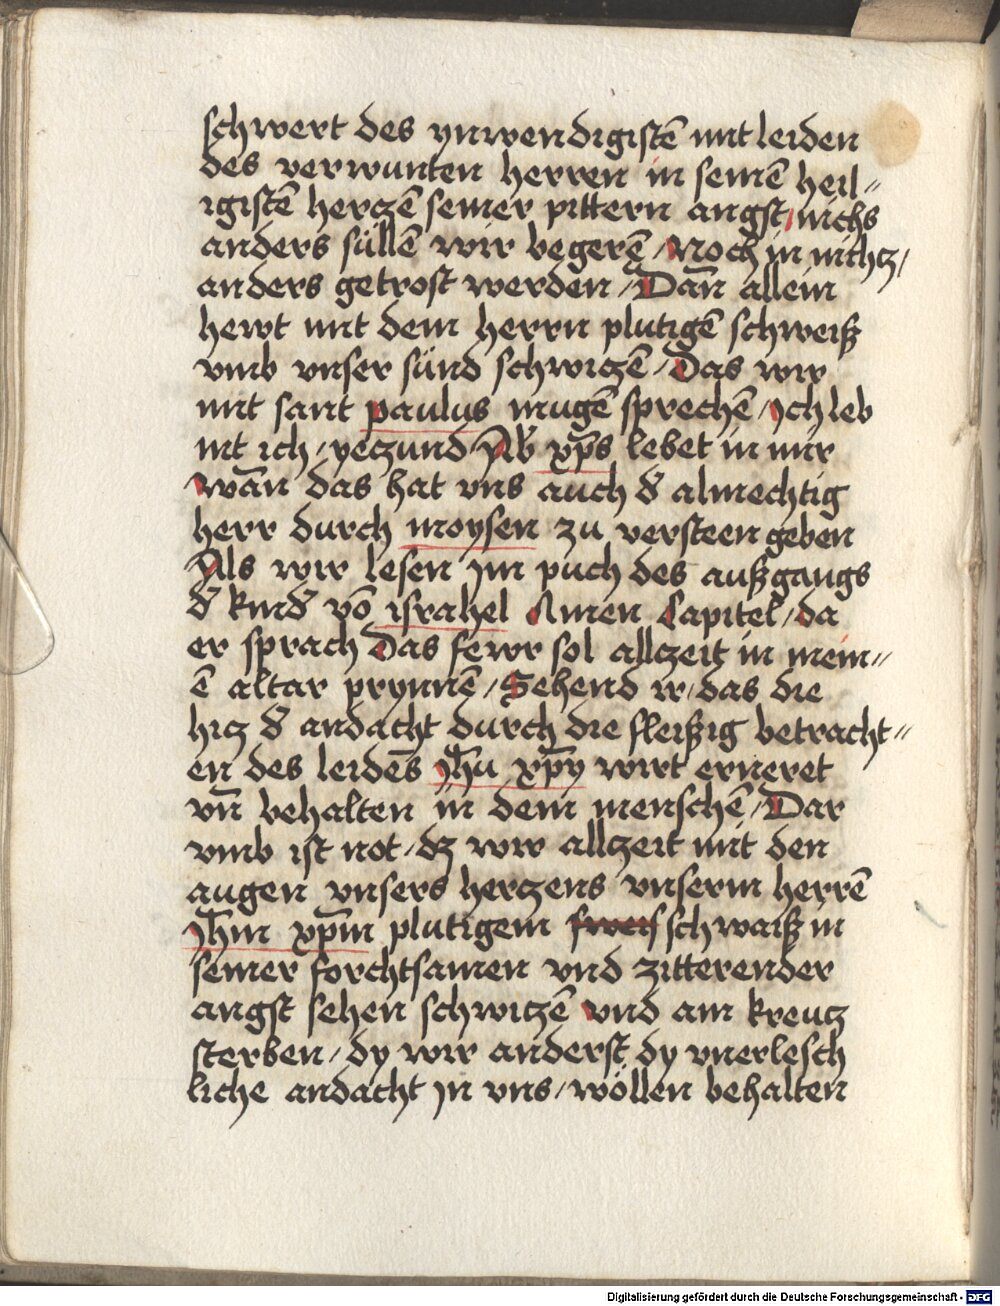 schwert des ynwendigistē mit leiden
des verwunten herren in seinē heil⸗
igistē herczē seiner pittern angst / nichs
anders süllē wir begerē / Noch in nichcz /
anders getrost werden / Dan̄ allein
hewt mit dem herrn plutigē schweiß
vmb vnser sünd schwiczē / Das wir
mit sant paulus mugē sprechē / Ich leb
nit ich / yeczund / Ab̄ xp̄s lebet in mir
wān das hat vns auch d̄ almechtig
herr durch moysen zu versteen geben
Als wir lesen Im puch des außgangs
d̄ kind̄ vō israhel Amen Capitel / da
er sprach Das fewr sol allczeit in mein⸗
ē altar prynnē / Sehend ir / das die
hicz d̄ andacht durch die fleißig betracht⸗
en des leidēs Jh̄u xp̄y wirt erneret
vn̄ behalten in dem menschē / Dar
vmb ist not / dz wir allczeit mit den
augen vnsers herczens vnserm herrē
Jh̄m xp̄m plutigem sweis schwaiß in
seiner forchtsamen vnd zitterender
angst sehen schwiczē vnd am kreucz
sterben / dy wir anderst dy vnerlesch
liche andacht in vns / wöllen behalten
Digitalisierung gefördert durch die Deutsche Forschungsgemeinschaft - DFG